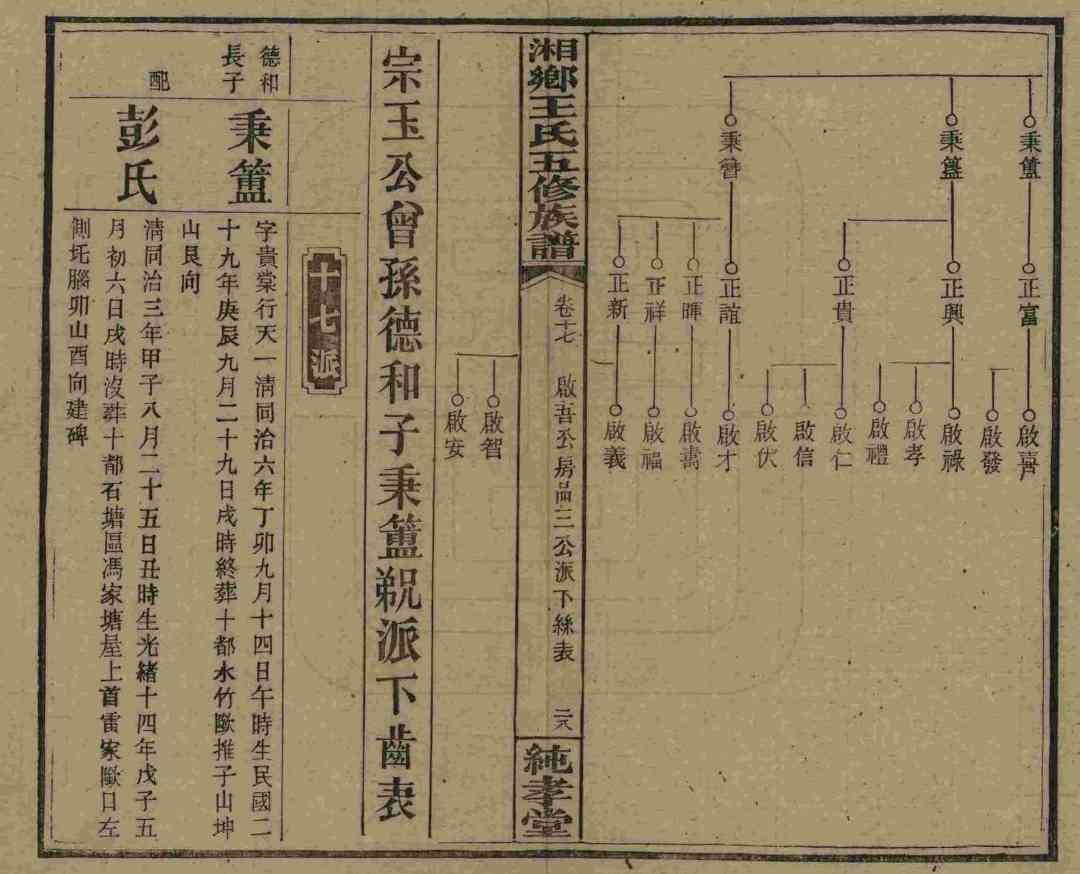 秉籚
秉簋
秉簪
正富
正興
正貴
正誼
正暉
正祥
正新
啟喜
啟發
啟祿
啟孝
啟禮
啟仁
啟信
啟伏
啟才
啟壽
啟福
啟義
湘鄉王氏五修族譜
卷十七
啟吾公房品三公派下絲表
二八
純孝堂
啟智
啟安
宗玉公曾孫德和子秉籚派下齒表
十七派
德和長子
秉籚
字貴棠行天一清同治六年丁卯九月十四日午時生民國二
十九年庚辰九月二十九日戌時終葬十都水竹歐推子山坤
山艮向
配
彭氏
清同治三年甲子八月二十五日丑時生光緒十四年戊子五
月初六日戌時沒葬十都石塘區馮家塘屋上首雷家歐口左
側坵腦卯山酉向建碑